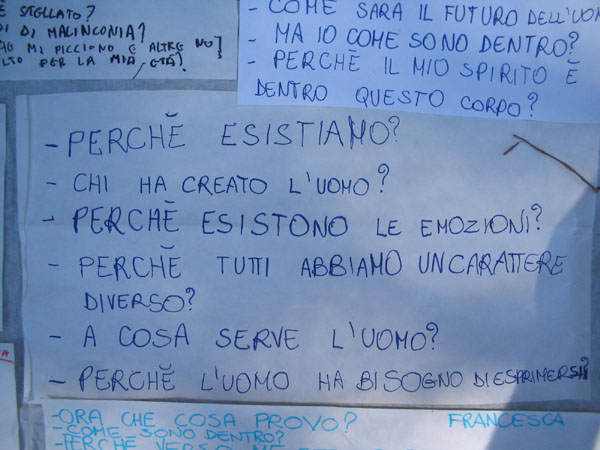 È STELLATO?
DI DI MALINCONIA?
MI PICCIONO E ALTRE NO]
LTO PER LA MIA ETÀ?
- COME SARA IL FUTURO DELL'UOM
- MA IO COME SONO DENTRO?
- PERCHĔ IL MIO SPIRITO Ĕ
DENTRO QUESTO CORPO?
- PERCHĔ ESISTIAMO?
- CHI HA CREATO L'UOMO?
- PERCHĔ ESISTONO LE EMOZIONI?
- PERCHĔ TUTTI ABBIAMO UN CARATTERE
DIVERSO?
- A COSA SERVE L'UOMO?
- PERCHĔ L'UOMO HA BISOGNO DI ESPRIMERSI?
-ORA CHE COSA PROVO? FRANCESCA
-COME SONO DENTRO?
-PERCHĔ VERSO ME